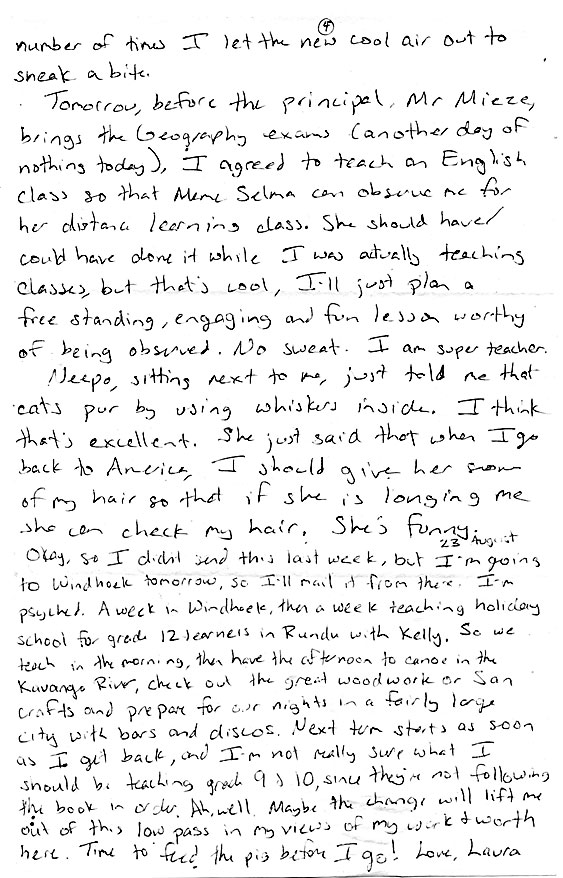 ④
number of times I let the new cool air out to
sneak a bite.
Tomorrow, before the principal, Mr Mieze,
brings the Geography exams (another day of
nothing today), I agreed to teach an English
class so that Meme Selma can observe me for
her distance learning class. She should have/
could have done it while I was actually teaching
classes, but that's cool, I'll just plan a
free standing, engaging and fun lesson worthy
of being observed. No sweat. I am super teacher.
Neepo, sitting next to me, just told me that
cats pur by using whiskers inside. I think
that's excellent. She just said that when I go
back to America, I should give her some
of my hair so that if she is longing me
she can check my hair. She's funny.
23 August
Okay, so I didn't send this last week, but I'm going
to Windhoek tomorrow, so I'll mail it from there. I'm
psyched. A week in Windhoek, then a week teaching holiday
school for grade 12 learners in Rundu with Kelly. So we
teach in the morning, then have the afternoon to canoe in the
Kavango River, check out the great woodwork or San
crafts and prepare for our nights in a fairly large
city with bars and discos. Next term starts as soon
as I get back, and I'm not really sure what I
should be teaching grade 9 & 10, since they're not following
the book in order. Ah, well. Maybe the change will lift me
out of this low pass in my views of my work & worth
here. Time to feed the pig before I go! Love, Laura